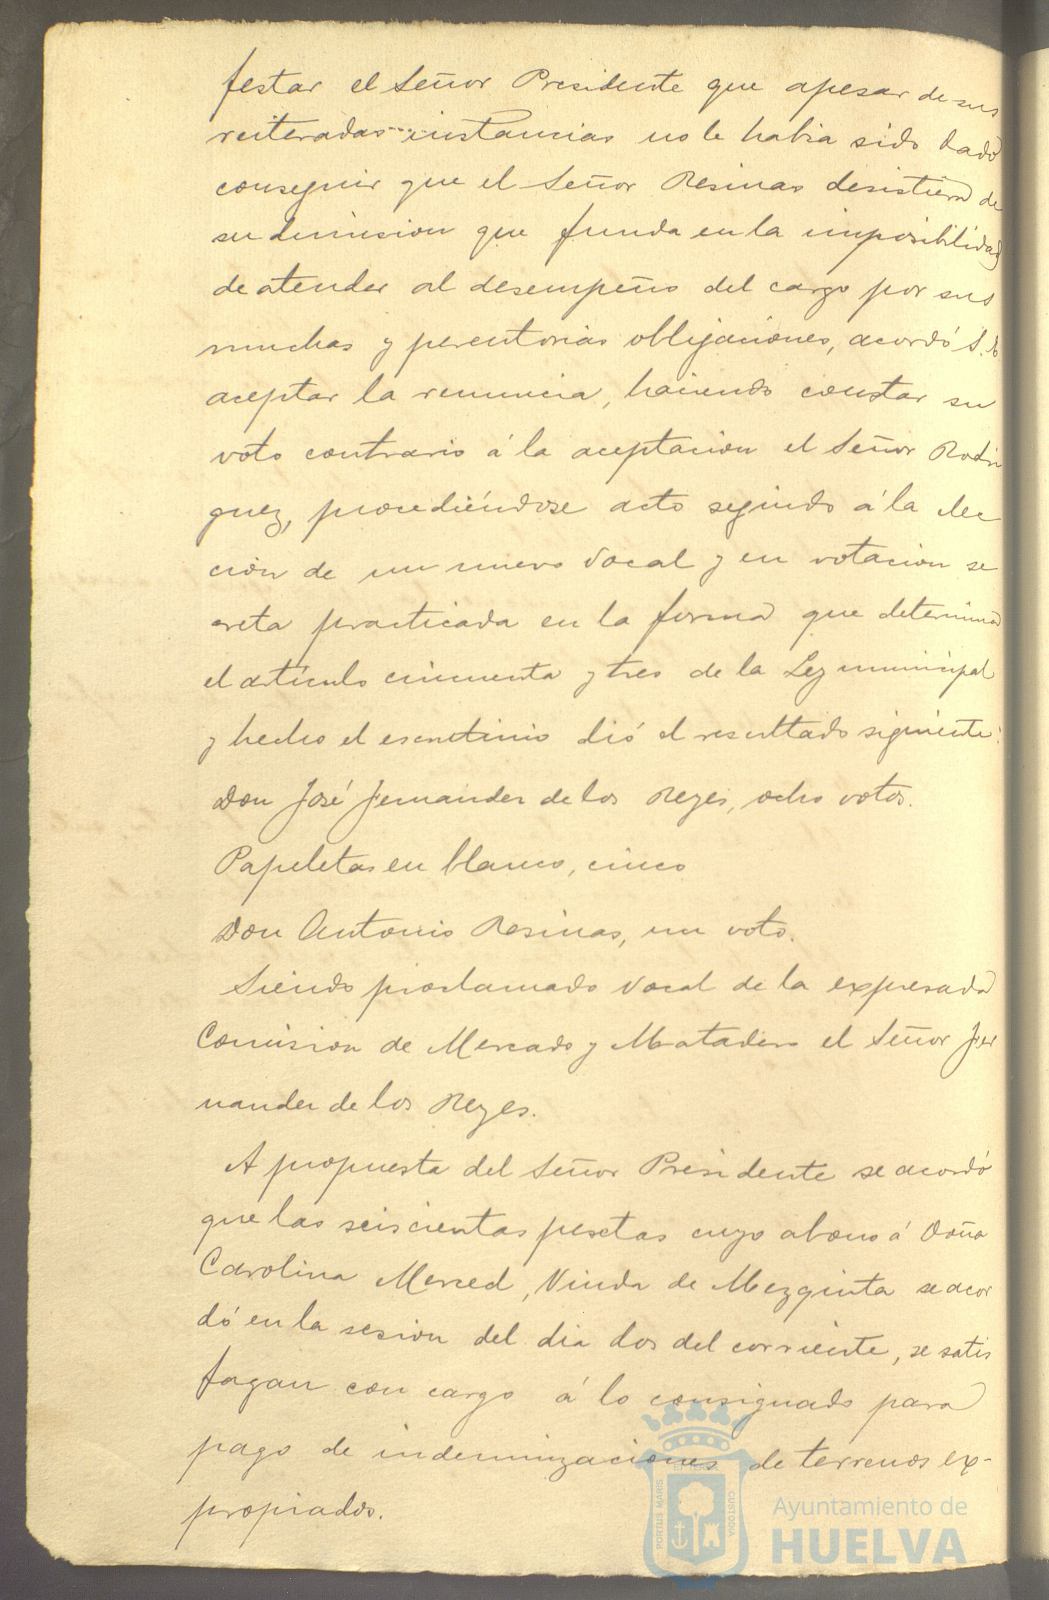 festar el Señor Presidente que apesar de sus
reiteradas instancias no le habia sido dado
conseguir que el Señor Resinas desistiera de
su dimision que funda en la imposibilidad
de atender al desempeño del cargo por sus
muchas y perentorias obligaciones, acordó S.E.
aceptar la renuncia, haciendo constar su
voto contrario á la aceptacion el Señor Rodri
guez, procediéndose acto seguido á la elec
ción de un nuevo Vocal y en votacion se
creta practicada en la forma que determina
el artículo cincuenta y tres de la Ley municipal
y hecho el escrutinio dió el resultado siguiente:
Don José Fernandez de los Reyes, ocho votos.
Papeletas en blanco, cinco
Don Antonio Resinas, un voto.
Siendo proclamado Vocal de la expresada
Comision de Mercado y Matadero el Señor Fer
nandez de los Reyes.
A propuesta del Señor Presidente se acordó
que las seiscientas pesetas cuyo abono á Doña
Carolina Merced, Viuda de Mezquita se acor
dó en la sesion del dia dos del corriente, se satis
fagan con cargo á lo consignado para
pago de indemnizaciones de terrenos ex-
propiados.
PORTUS MARIS
CUSTODIA
Ayuntamiento de
HUELVA